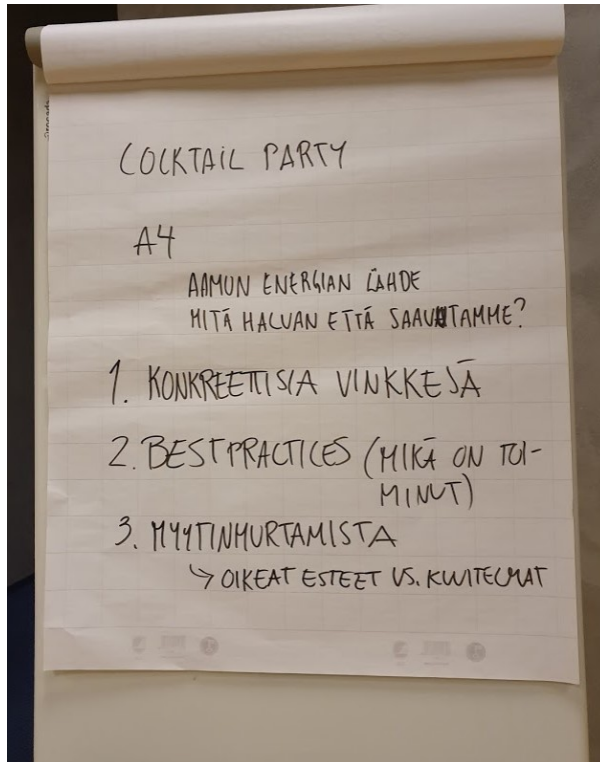 COCKTAIL PARTY
A4
AAMUN ENERGIAN LÄHDE
MITÄ HALUAN ETTÄ SAAVUTAMME?
1. KONKREETTISIA VINKKEJÄ
2. BEST PRACTICES (MIKÄ ON TOI-
MINUT)
3. MYYTINMURTAMISTA
↳ OIKEAT ESTEET VS. KUVITELMAT